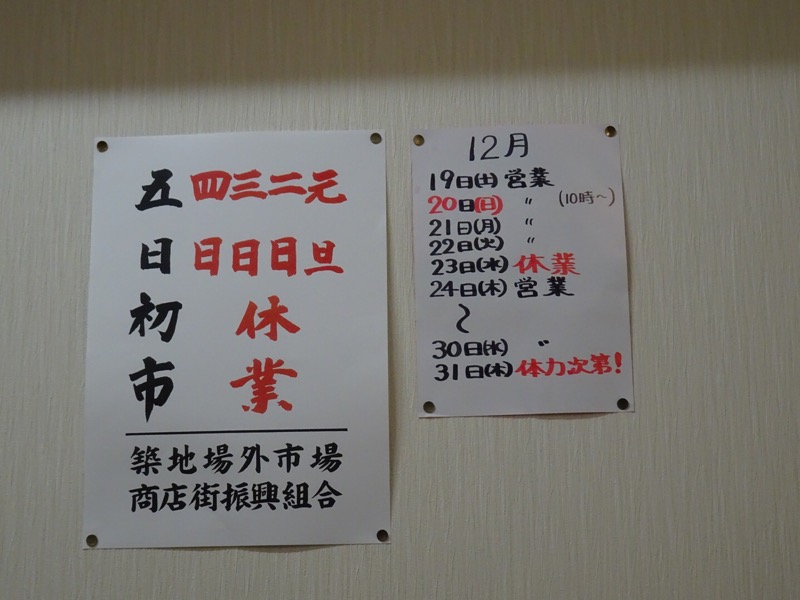 元旦
二日
三日
四日
休業
五日初市
築地場外市場
商店街振興組合
12月
19日(土) 営業
20日(日) 〃 (10時〜)
21日(月) 〃
22日(火) 〃
23日(水) 休業
24日(木) 営業
〜
30日(水) 〃
31日(木) 体力次第!